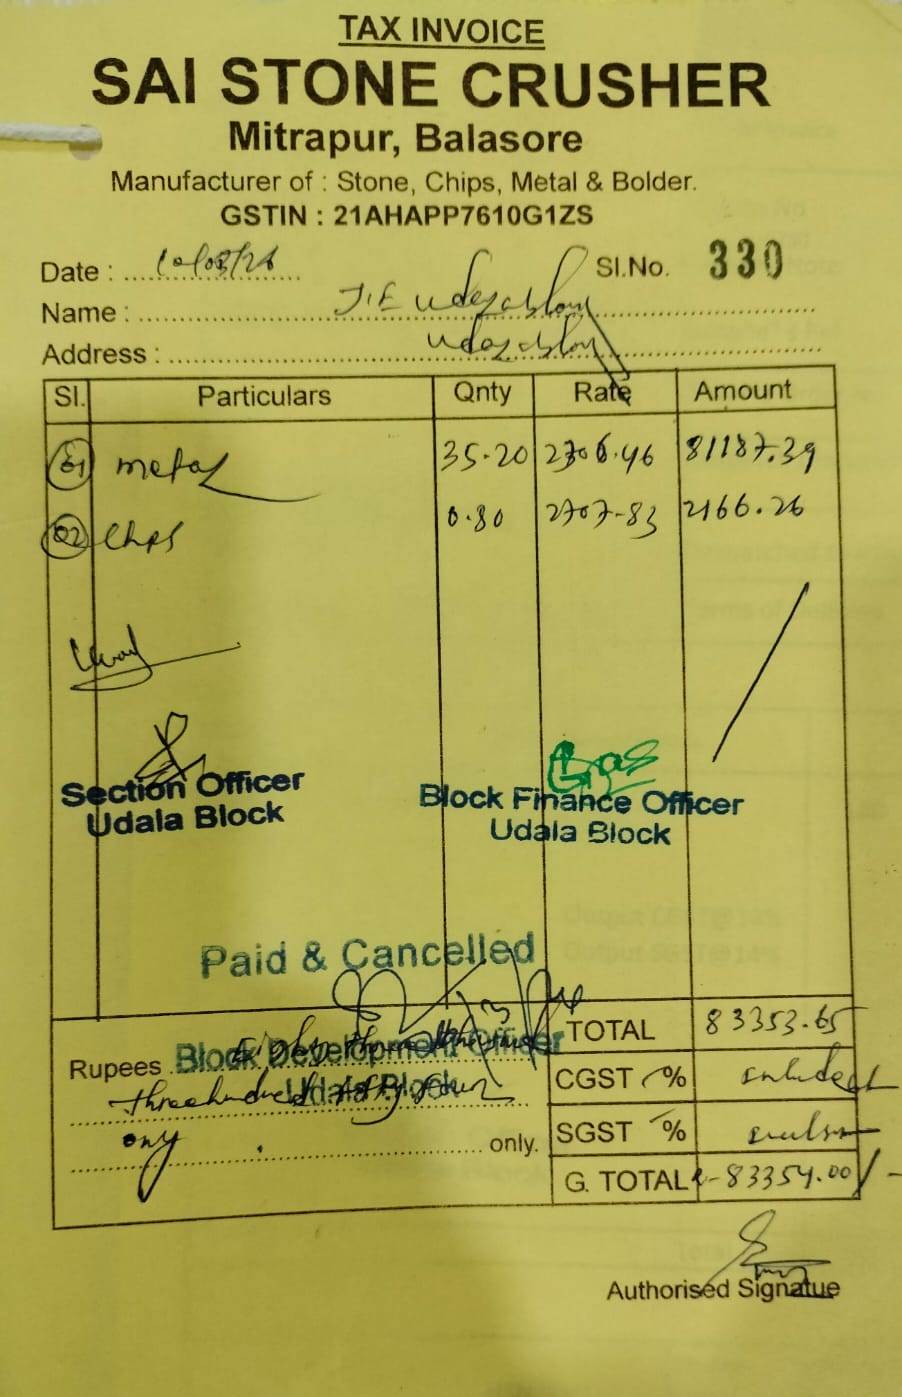 TAX INVOICE
SAI STONE CRUSHER
Mitrapur, Balasore
Manufacturer of : Stone, Chips, Metal & Bolder.
GSTIN : 21AHAPP7610G1ZS
Date : 10/03/26 Sl.No. 330
Name : J.E
Address :
Sl. Particulars Qnty Rate Amount
01 metal 35.20 2306.46 81187.39
02 Chips 0.80 2707-83 2166.26
Section Officer
Udala Block
Block Finance Officer
Udala Block
Paid & Cancelled
TOTAL 83353.65
Rupees Block Development Officer
Udala Block
CGST % included
three hundred fifty four
SGST %
only only.
G. TOTAL 83354.00/-
Authorised Signatue